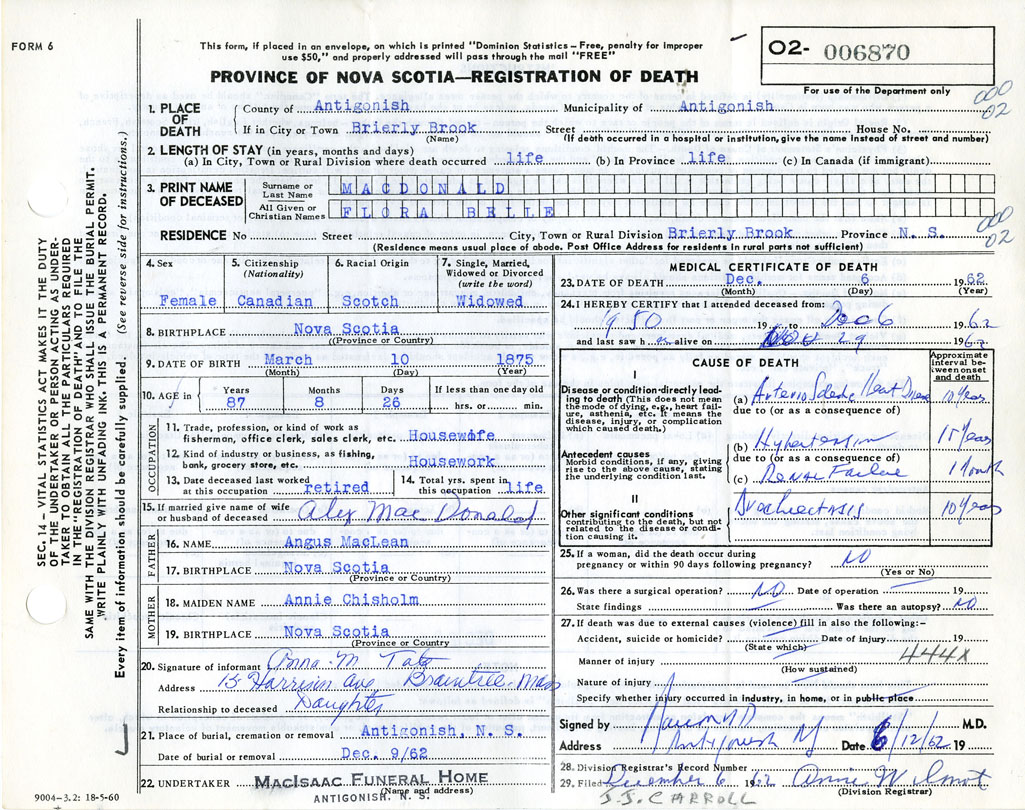 FORM 6
This form, if placed in an envelope, on which is printed "Dominion Statistics – Free, penalty for improper
use $50," and properly addressed will pass through the mail "FREE"
O2- 006870
PROVINCE OF NOVA SCOTIA—REGISTRATION OF DEATH
For use of the Department only
000
02
1. PLACE OF DEATH
County of Antigonish Municipality of Antigonish
If in City or Town Brierly Brook Street House No.
(Name) (If death occurred in a hospital or institution, give the name instead of street and number)
2. LENGTH OF STAY (in years, months and days)
(a) In City, Town or Rural Division where death occurred life (b) In Province life (c) In Canada (if immigrant)
3. PRINT NAME OF DECEASED
Surname or Last Name MACDONALD
All Given or Christian Names FLORA BELLE
000
02
RESIDENCE No Street City, Town or Rural Division Brierly Brook Province N. S.
(Residence means usual place of abode. Post Office Address for residents in rural parts not sufficient)
4. Sex Female
5. Citizenship (Nationality) Canadian
6. Racial Origin Scotch
7. Single, Married, Widowed or Divorced (write the word) Widowed
8. BIRTHPLACE Nova Scotia
((Province or Country)
9. DATE OF BIRTH March 10 1875
(Month) (Day) (Year)
10. AGE in Years 87 Months 8 Days 26 If less than one day old hrs. or min.
OCCUPATION
11. Trade, profession, or kind of work as
fisherman, office clerk, sales clerk, etc. Housewife
12. Kind of industry or business, as fishing,
bank, grocery store, etc. Housework
13. Date deceased last worked
at this occupation retired
14. Total yrs. spent in
this occupation life
15. If married give name of wife
or husband of deceased Alex MacDonald
FATHER
16. NAME Angus MacLean
17. BIRTHPLACE Nova Scotia
(Province or Country)
MOTHER
18. MAIDEN NAME Annie Chisholm
19. BIRTHPLACE Nova Scotia
(Province or Country)
20. Signature of informant Anna M Tate
Address 15 Harrison Ave Braintree Mass
Relationship to deceased Daughter
21. Place of burial, cremation or removal Antigonish, N. S.
Date of burial or removal Dec. 9/62
22. UNDERTAKER MACISAAC FUNERAL HOME
(Name and address)
ANTIGONISH, N. S.
MEDICAL CERTIFICATE OF DEATH
23. DATE OF DEATH Dec. 6 1962
(Month) (Day) (Year)
24. I HEREBY CERTIFY that I attended deceased from:
1950 19 to Dec 6 1962
and last saw h er alive on Nov 29 1962
CAUSE OF DEATH
Approximate interval between onset and death
I
Disease or condition directly leading to death (This does not mean the mode of dying, e.g., heart failure, asthenia, etc. It means the disease, injury, or complication which caused death.)
(a) Arterio Sclerotic Heart Disease 10 years
due to (or as a consequence of)
Antecedent causes
Morbid conditions, if any, giving rise to the above cause, stating the underlying condition last.
(b) Hypertension 15 years
due to (or as a consequence of)
(c) Renal Failure 1 Month
II
Other significant conditions
contributing to the death, but not related to the disease or condition causing it.
Bronchiectasis 10 years
25. If a woman, did the death occur during
pregnancy or within 90 days following pregnancy? NO
(Yes or No)
26. Was there a surgical operation? NO Date of operation 19
State findings Was there an autopsy? NO
27. If death was due to external causes (violence) fill in also the following:-
Accident, suicide or homicide? Date of injury 19
(State which)
Manner of injury 444X
(How sustained)
Nature of injury
Specify whether injury occurred in industry, in home, or in public place
Signed by M.D.
Address Antigonish NS Date 6/12/62 19
28. Division Registrar's Record Number
29. Filed December 6 1962
(Division Registrar)
J.J. CARROLL
SEC. 14 – VITAL STATISTICS ACT MAKES IT THE DUTY
OF THE UNDERTAKER OR PERSON ACTING AS UNDER-
TAKER TO OBTAIN ALL THE PARTICULARS REQUIRED
IN THE "REGISTRATION OF DEATH" AND TO FILE THE
SAME WITH THE DIVISION REGISTRAR WHO SHALL ISSUE THE BURIAL PERMIT.
WRITE PLAINLY WITH UNFADING INK. THIS IS A PERMANENT RECORD.
Every item of information should be carefully supplied. (See reverse side for instructions.)
9004-3.2: 18-5-60